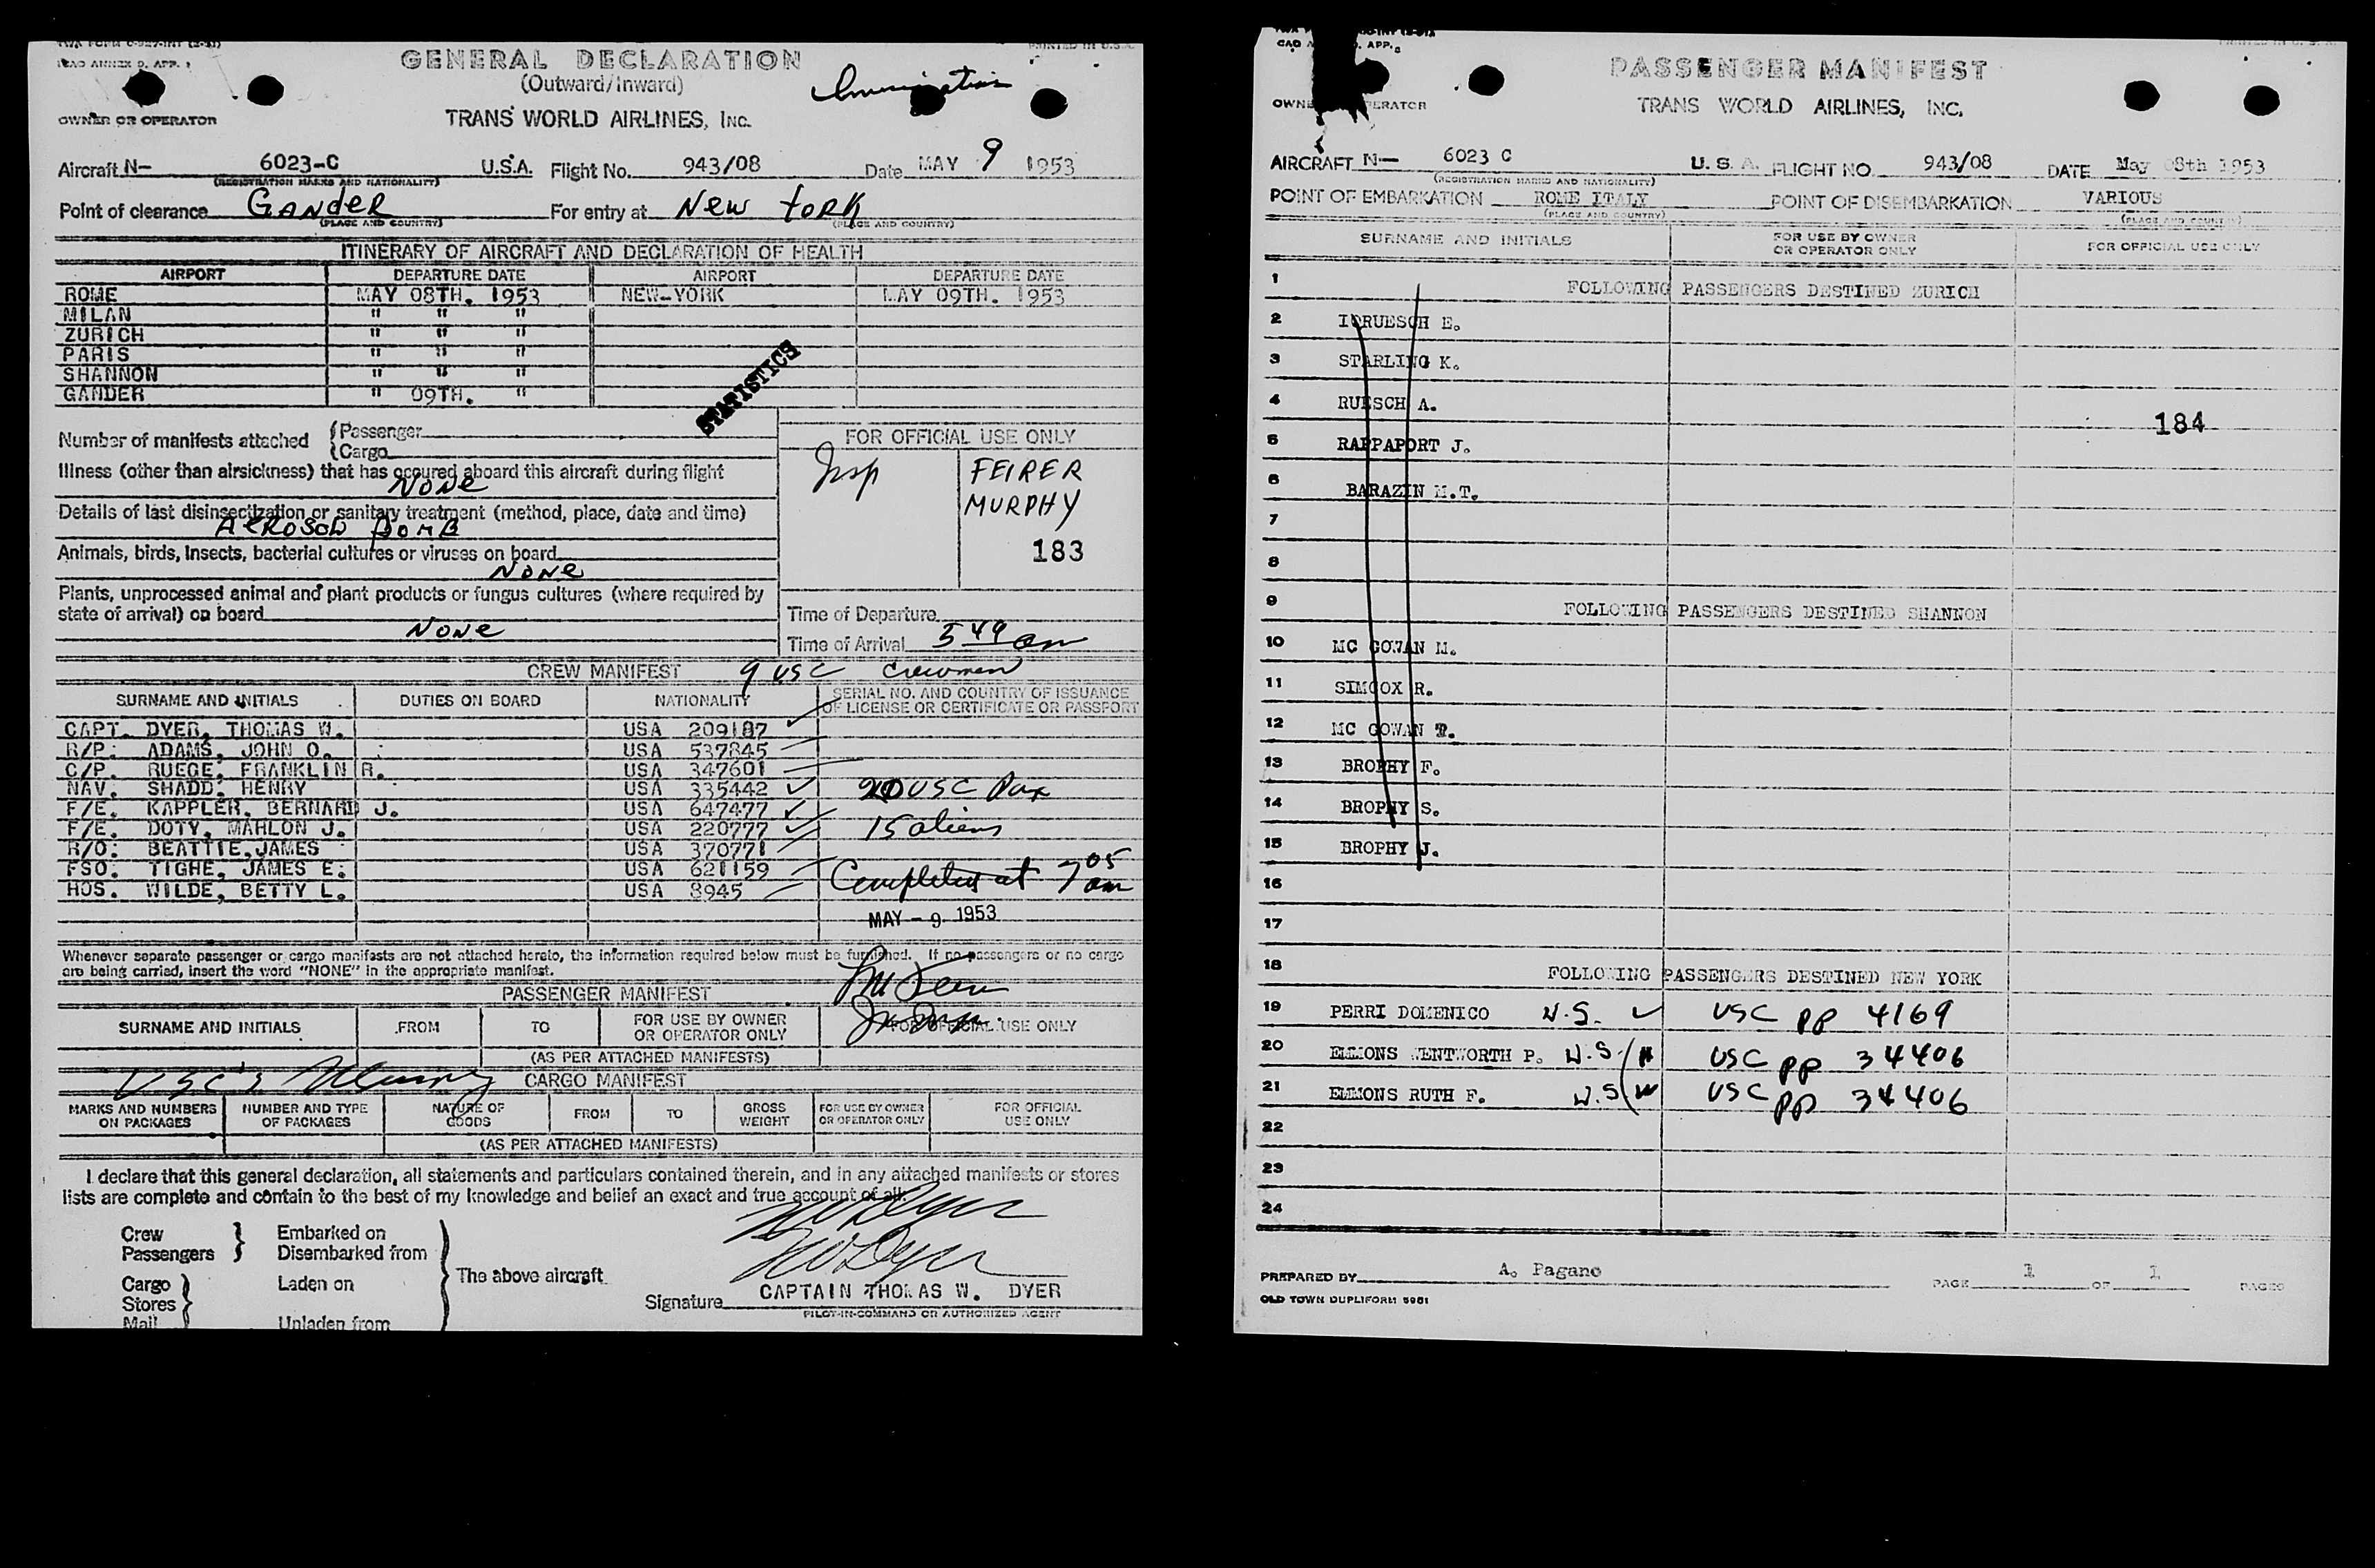 TWA FORM
ICAO ANNEX 9, APP. 1
PRINTED IN U.S.A.
GENERAL DECLARATION
(Outward/Inward)
Immigration
OWNER OR OPERATOR
TRANS WORLD AIRLINES, INC.
Aircraft N- 6023-C U.S.A. Flight No. 943/08 Date MAY 9 1953
(REGISTRATION MARKS AND NATIONALITY)
Point of clearance GANDER For entry at New York
(PLACE AND COUNTRY) (PLACE AND COUNTRY)
ITINERARY OF AIRCRAFT AND DECLARATION OF HEALTH
AIRPORT DEPARTURE DATE AIRPORT DEPARTURE DATE
ROME MAY 08TH. 1953 NEW-YORK MAY 09TH. 1953
MILAN " " "
ZURICH " " "
PARIS " " "
SHANNON " " "
GANDER " 09TH. "
STATISTICS
Number of manifests attached {Passenger
{Cargo
FOR OFFICIAL USE ONLY
Illness (other than airsickness) that has occured aboard this aircraft during flight
None
Insp FEIRER
MURPHY
183
Details of last disinsectization or sanitary treatment (method, place, date and time)
AEROSOL BOMB
Animals, birds, insects, bacterial cultures or viruses on board
None
Plants, unprocessed animal and plant products or fungus cultures (where required by
state of arrival) on board
None
Time of Departure
Time of Arrival 5 49 am
CREW MANIFEST 9 USC Crewmen
SURNAME AND INITIALS DUTIES ON BOARD NATIONALITY SERIAL NO. AND COUNTRY OF ISSUANCE
OF LICENSE OR CERTIFICATE OR PASSPORT
CAPT. DYER, THOMAS W. USA 209187
R/P: ADAMS, JOHN O. USA 537845
C/P. RUEGE, FRANKLIN R. USA 347601
NAV. SHADD: HENRY USA 335442
F/E. KAPPLER, BERNARD J. USA 647477
F/E. DOTY, MAHLON J. USA 220777
R/O: BEATTIE, JAMES USA 370771
FSO: TIGHE, JAMES E: USA 621159
HOS. WILDE, BETTY L. USA 8945
20 USC Pax
15 aliens
Completed at 7 05 am
MAY - 9 1953
Whenever separate passenger or cargo manifests are not attached hereto, the information required below must be furnished. If no passengers or no cargo
are being carried, insert the word "NONE" in the appropriate manifest.
PASSENGER MANIFEST
SURNAME AND INITIALS FROM TO FOR USE BY OWNER
OR OPERATOR ONLY
FOR OFFICIAL USE ONLY
(AS PER ATTACHED MANIFESTS)
USC's Murphy
CARGO MANIFEST
MARKS AND NUMBERS
ON PACKAGES
NUMBER AND TYPE
OF PACKAGES
NATURE OF
GOODS
FROM
TO
GROSS
WEIGHT
FOR USE BY OWNER
OR OPERATOR ONLY
FOR OFFICIAL
USE ONLY
(AS PER ATTACHED MANIFESTS)
I declare that this general declaration, all statements and particulars contained therein, and in any attached manifests or stores
lists are complete and contain to the best of my knowledge and belief an exact and true account of all:
Crew
Passengers
Embarked on
Disembarked from
Cargo
Stores
Mail
Laden on
Unladen from
The above aircraft
TW Dyer
TW Dyer
Signature CAPTAIN THOMAS W. DYER
PILOT-IN-COMMAND OR AUTHORIZED AGENT
PASSENGER MANIFEST
TRANS WORLD AIRLINES, INC.
AIRCRAFT N- 6023 C U. S. A. FLIGHT NO. 943/08 DATE May 08th 1953
(REGISTRATION MARKS AND NATIONALITY)
POINT OF EMBARKATION ROME ITALY POINT OF DISEMBARKATION VARIOUS
(PLACE AND COUNTRY) (PLACE AND COUNTRY)
SURNAME AND INITIALS FOR USE BY OWNER
OR OPERATOR ONLY
FOR OFFICIAL USE ONLY
1 FOLLOWING PASSENGERS DESTINED ZURICH
2 RUESCH E.
3 STARLING K.
4 RUESCH A.
184
5 RAPPAPORT J.
6 BARAZIN M.T.
7
8
9 FOLLOWING PASSENGERS DESTINED SHANNON
10 MC GOWAN M.
11 SIMCOX R.
12 MC GOWAN T.
13 BROPHY F.
14 BROPHY S.
15 BROPHY J.
16
17
18 FOLLOWING PASSENGERS DESTINED NEW YORK
19 PERRI DOMENICO W.S. USC PP 4169
20 EMMONS WENTWORTH P. W.S. USC PP 34406
21 EMMONS RUTH F. W.S. USC PP 34406
22
23
24
PREPARED BY A. Pagano PAGE 1 OF 1 PAGES
OLD TOWN DUPLIFORM 5901